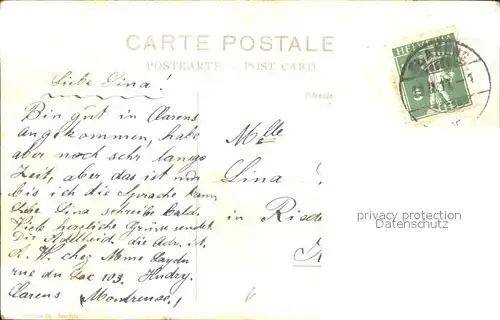 CARTE POSTALE
POSTKARTE — POST CARD
HELVETIA
Liebe Lina!
Bin gut in Clarens
angekommen, habe
aber noch sehr lange
Zeit, aber das ist nur
bis ich die Sprache kann
Liebe Lina schreibe bald.
Viele herzliche Grüsse sendet
Dir Adelheid, die Adr. ist.
A. W. chez Mme
rue du Lac 103.
Clarens (Montreux)
Adresse
Mlle
Lina
in
privacy protection
Datenschutz